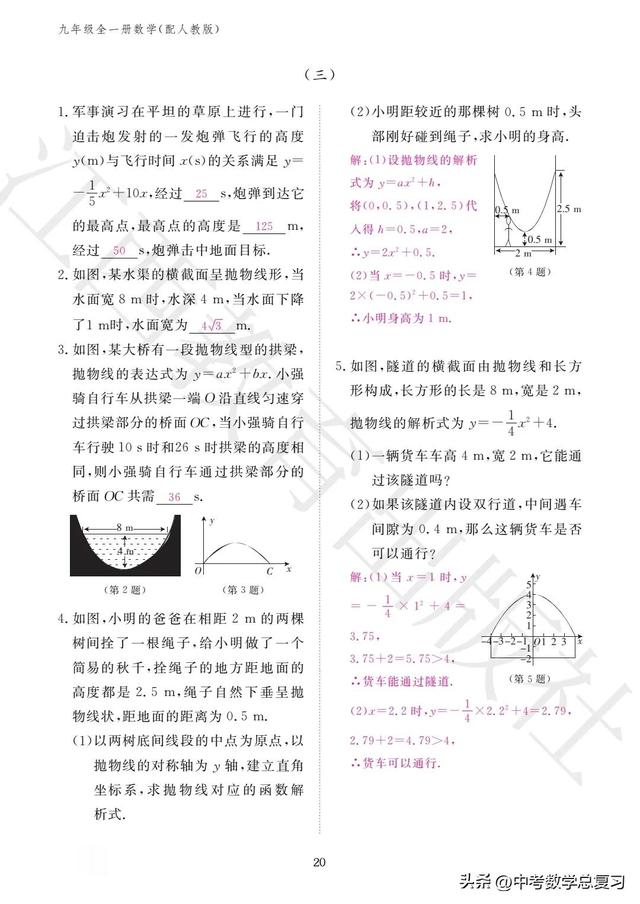 九年级全一册数学(配人教版)
(三)
1. 军事演习在平坦的草原上进行,一门
迫击炮发射的一发炮弹飞行的高度
y(m)与飞行时间 x(s)的关系满足 y=
-1/5x²+10x,经过 25 s,炮弹到达它
的最高点,最高点的高度是 125 m,
经过 50 s,炮弹击中地面目标.
2. 如图,某水渠的横截面呈抛物线形,当
水面宽 8 m 时,水深 4 m,当水面下降
了1 m时,水面宽为 4√3 m.
3. 如图,某大桥有一段抛物线型的拱梁,
抛物线的表达式为 y=ax²+bx. 小强
骑自行车从拱梁一端 O 沿直线匀速穿
过拱梁部分的桥面 OC,当小强骑自行
车行驶 10 s 时和26 s 时拱梁的高度相
同,则小强骑自行车通过拱梁部分的
桥面 OC 共需 36 s.
8 m
4 m
(第 2 题)
y
O C x
(第 3 题)
4. 如图,小明的爸爸在相距 2 m 的两棵
树间拴了一根绳子,给小明做了一个
简易的秋千,拴绳子的地方距地面的
高度都是 2.5 m,绳子自然下垂呈抛
物线状,距地面的距离为 0.5 m.
(1)以两树底间线段的中点为原点,以
抛物线的对称轴为 y 轴,建立直角
坐标系,求抛物线对应的函数解
析式.
(2)小明距较近的那棵树 0.5 m 时,头
部刚好碰到绳子,求小明的身高.
解:(1)设抛物线的解析
式为 y=ax²+h,
将(0,0.5),(1,2.5)代
人得 h=0.5,a=2,
∴y=2x²+0.5.
(2)当 x=-0.5 时,y=
2×(-0.5)²+0.5=1,
∴小明身高为 1 m.
0.5 m
2.5 m
0.5 m
2 m
(第 4 题)
5. 如图,隧道的横截面由抛物线和长方
形构成,长方形的长是 8 m,宽是 2 m,
抛物线的解析式为 y=-1/4x²+4.
(1)一辆货车车高 4 m,宽 2 m,它能通
过该隧道吗?
(2)如果该隧道内设双行道,中间遇车
间隙为 0.4 m,那么这辆货车是否
可以通行?
解:(1)当 x=1 时,y
=-1/4×1²+4=
3.75,
3.75+2=5.75>4,
∴货车能通过隧道.
(2)x=2.2 时,y=-1/4×2.2²+4=2.79,
2.79+2=4.79>4,
∴货车可以通行.
y
5
4
3
2
1
-4-3-2-1 O 1 2 3 x
-1
-2
(第 5 题)
江西教育出版社
20
头条 @中考数学总复习